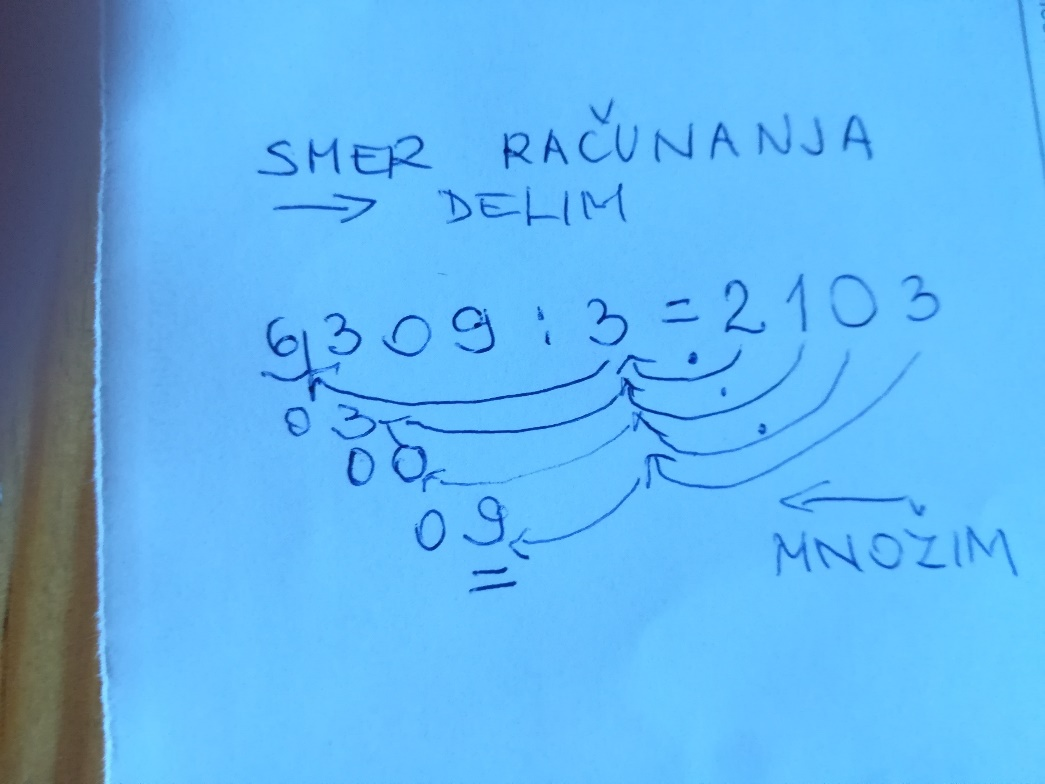 SMER RAČUNANJA
→ DELIM
6309 : 3 = 2103
03
00
09
←
MNOŽIM